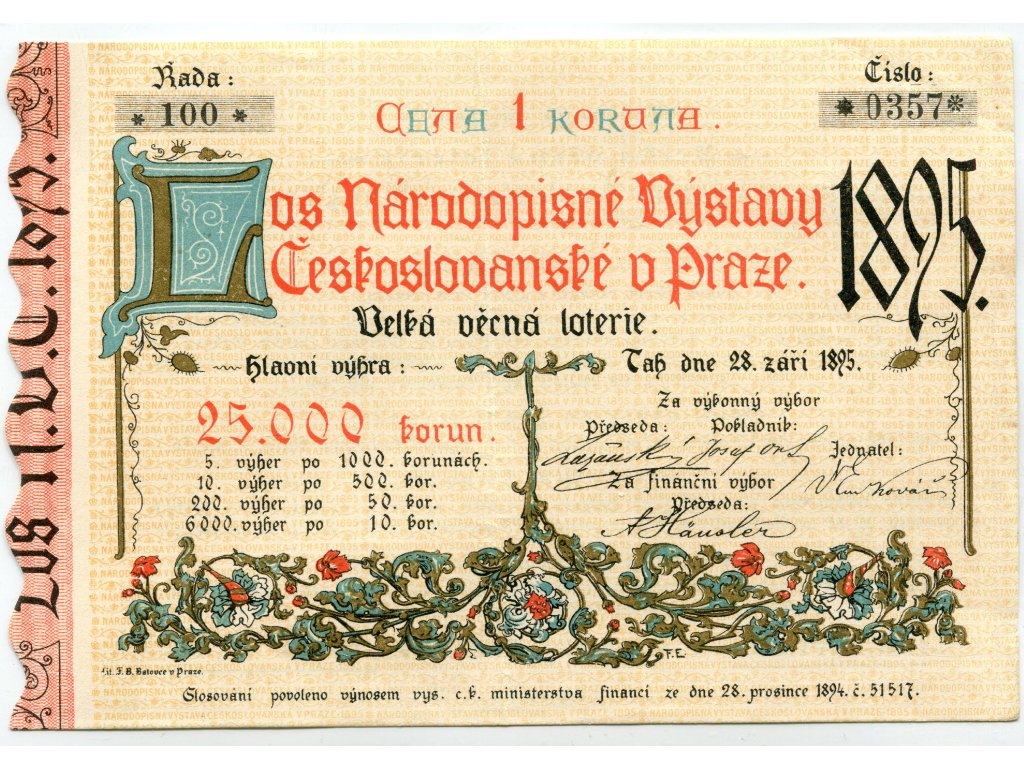 Řada:
* 100 *
Číslo:
* 0357 *
Cena 1 koruna.
Los Národopisné Výstavy
Českoslovanské v Praze.
1895.
Velká věcná loterie.
Hlavní výhra:
Tah dne 28. září 1895.
25.000 korun.
5. výher po 1000. korunách.
10. výher po 500. kor.
200. výher po 50. kor.
6000. výher po 10. kor.
Za výkonný výbor
Předseda: Pokladník:
Jednatel:
Za finanční výbor
Předseda:
F.E.
Lit. F. B. Batovce v Praze.
Slosování povoleno výnosem vys. c.k. ministerstva financí ze dne 28. prosince 1894. č. 51517.